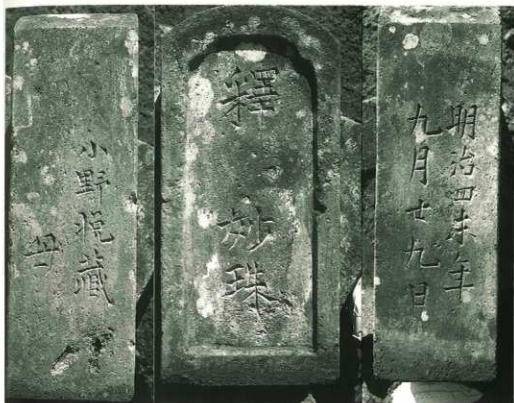 明治四未年
九月廿九日
釋妙珠
小野悦藏
母